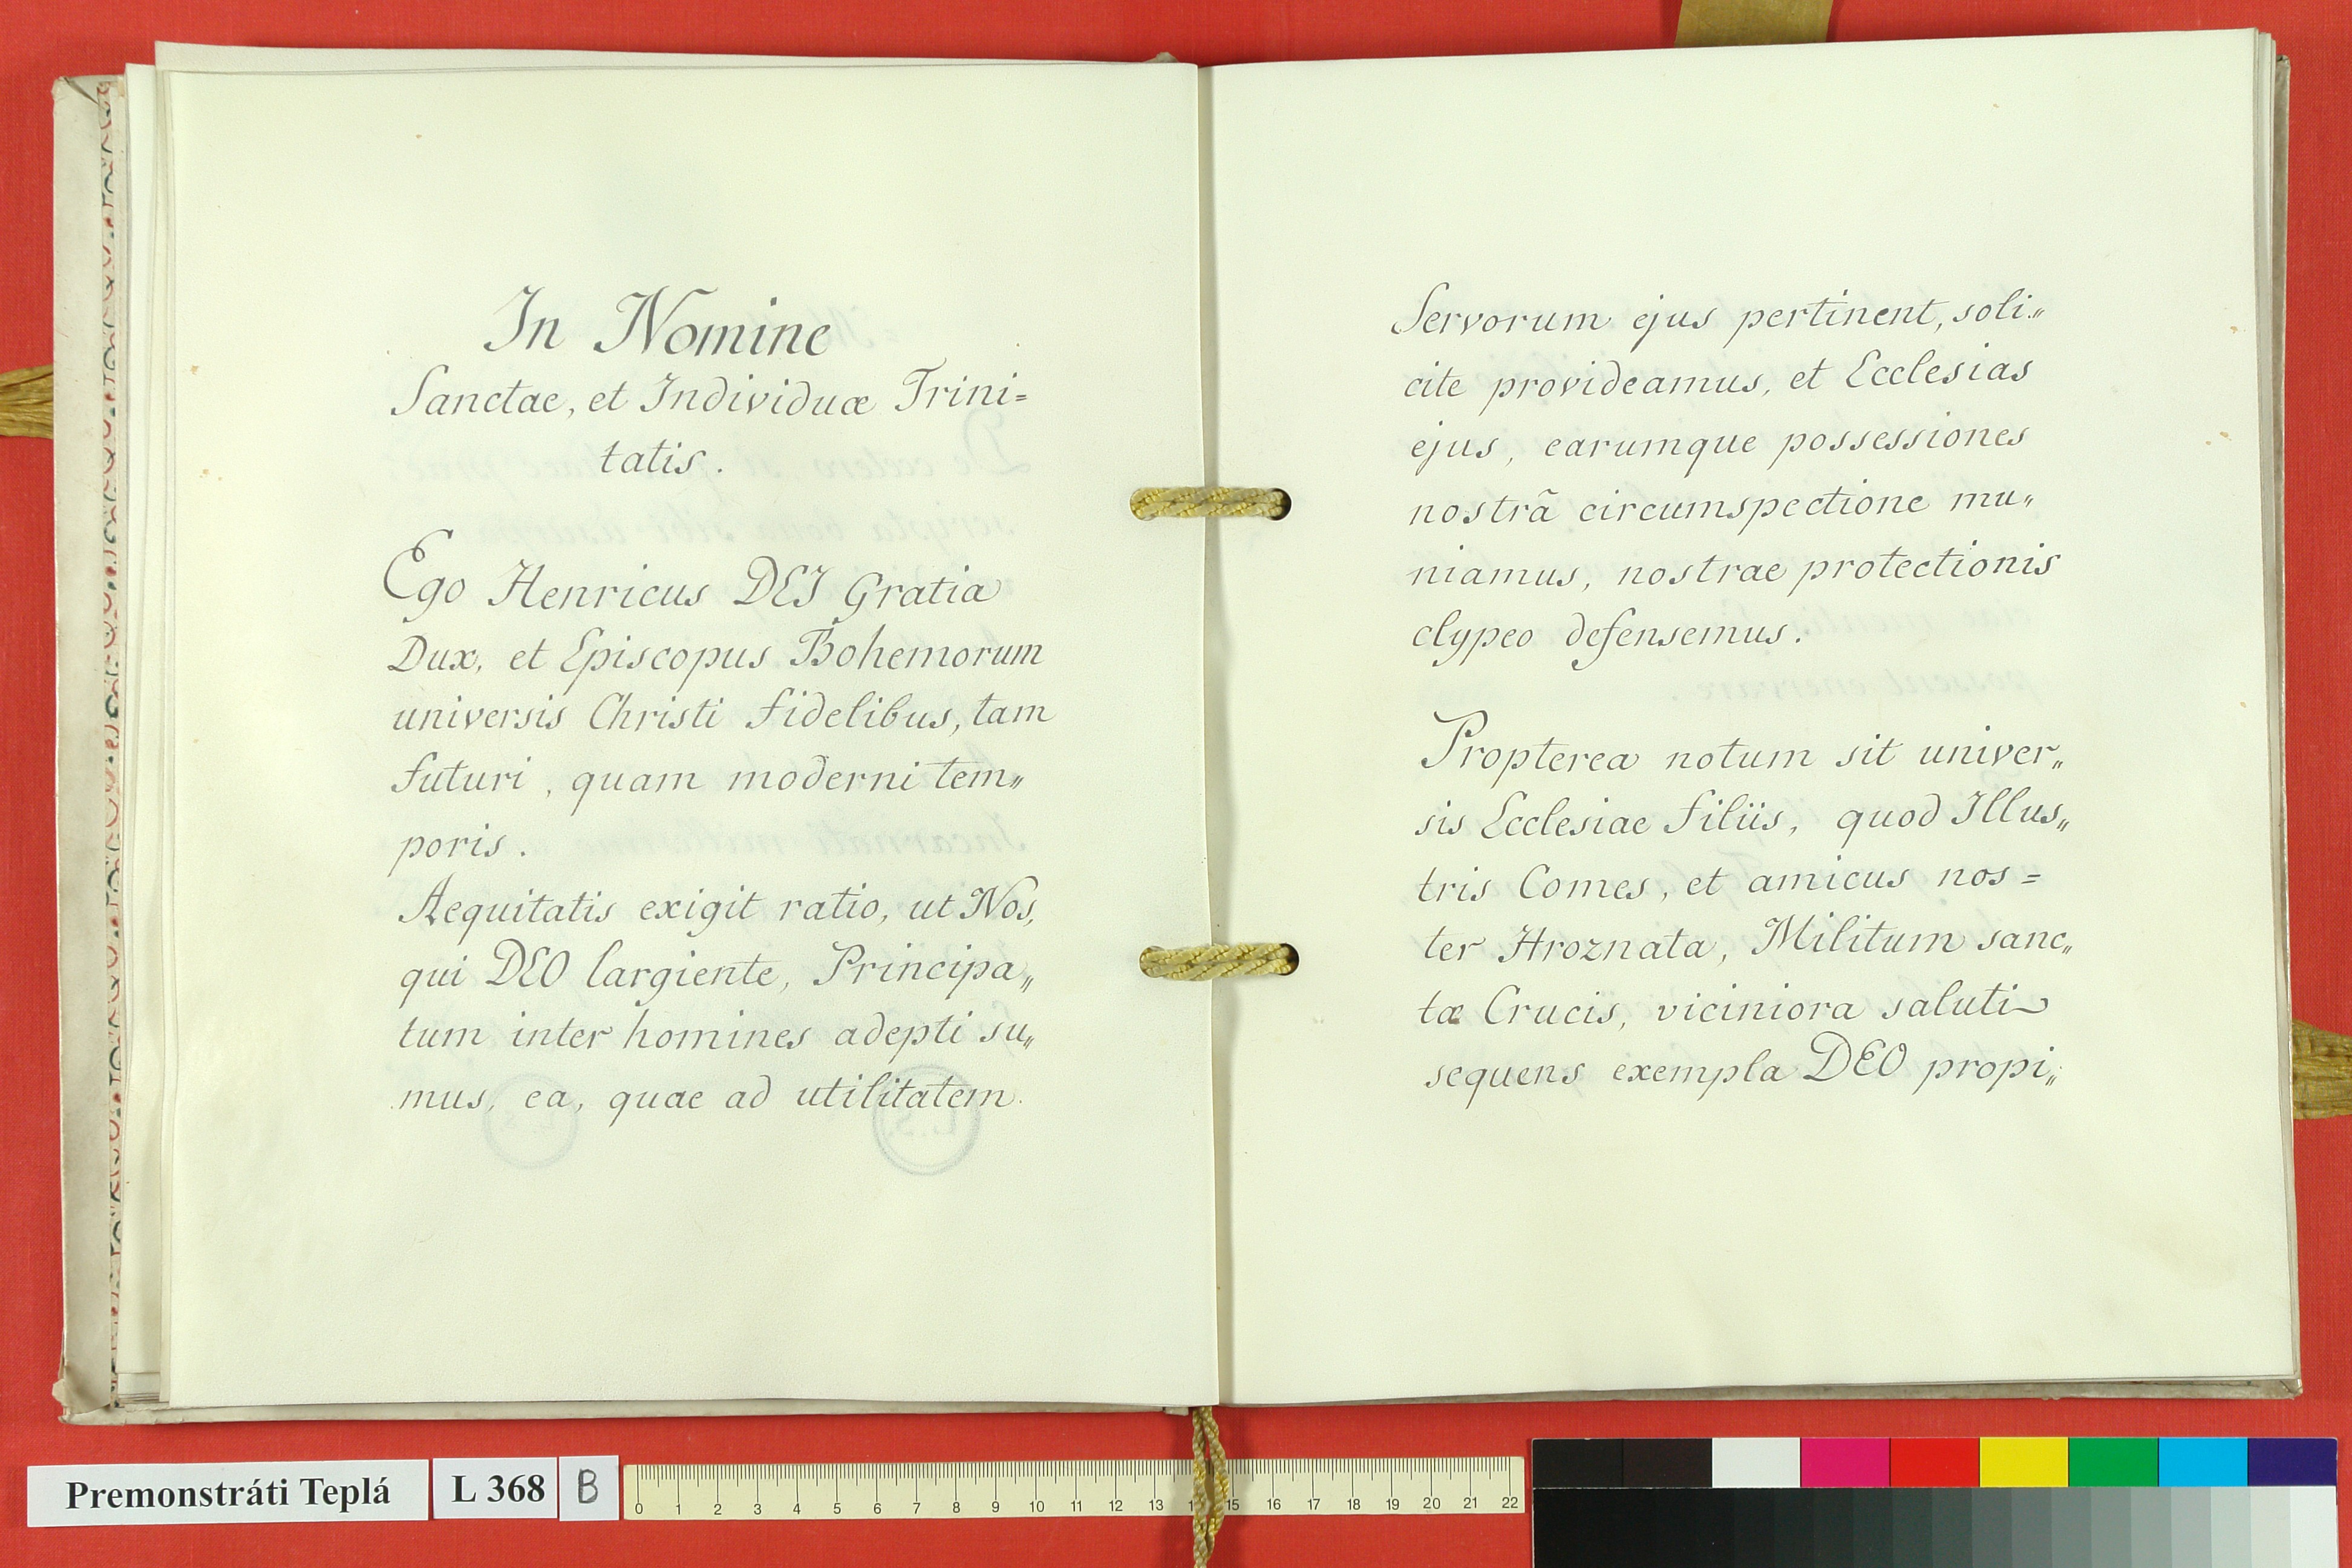 In Nomine
Sanctae, et Individuæ Trini=
tatis.
Ego Henricus DEI Gratia
Dux, et Episcopus Bohemorum
universis Christi fidelibus, tam
futuri, quam moderni tem„
poris.
Aequitatis exigit ratio, ut Nos,
qui DEO largiente, Principa„
tum inter homines adepti su„
mus, ea, quae ad utilitatem
Servorum ejus pertinent, soli„
cite provideamus, et Ecclesias
ejus, earumque possessiones
nostrã circumspectione mu„
niamus, nostrae protectionis
clypeo defensemus.
Propterea notum sit univer„
sis Ecclesiae filiis, quod Illus„
tris Comes, et amicus nos=
ter Hroznata, Militum sanc„
tæ Crucis, viciniora saluti
sequens exempla DEO propi„
Premonstráti Teplá L 368 B
0 1 2 3 4 5 6 7 8 9 10 11 12 13 14 15 16 17 18 19 20 21 22